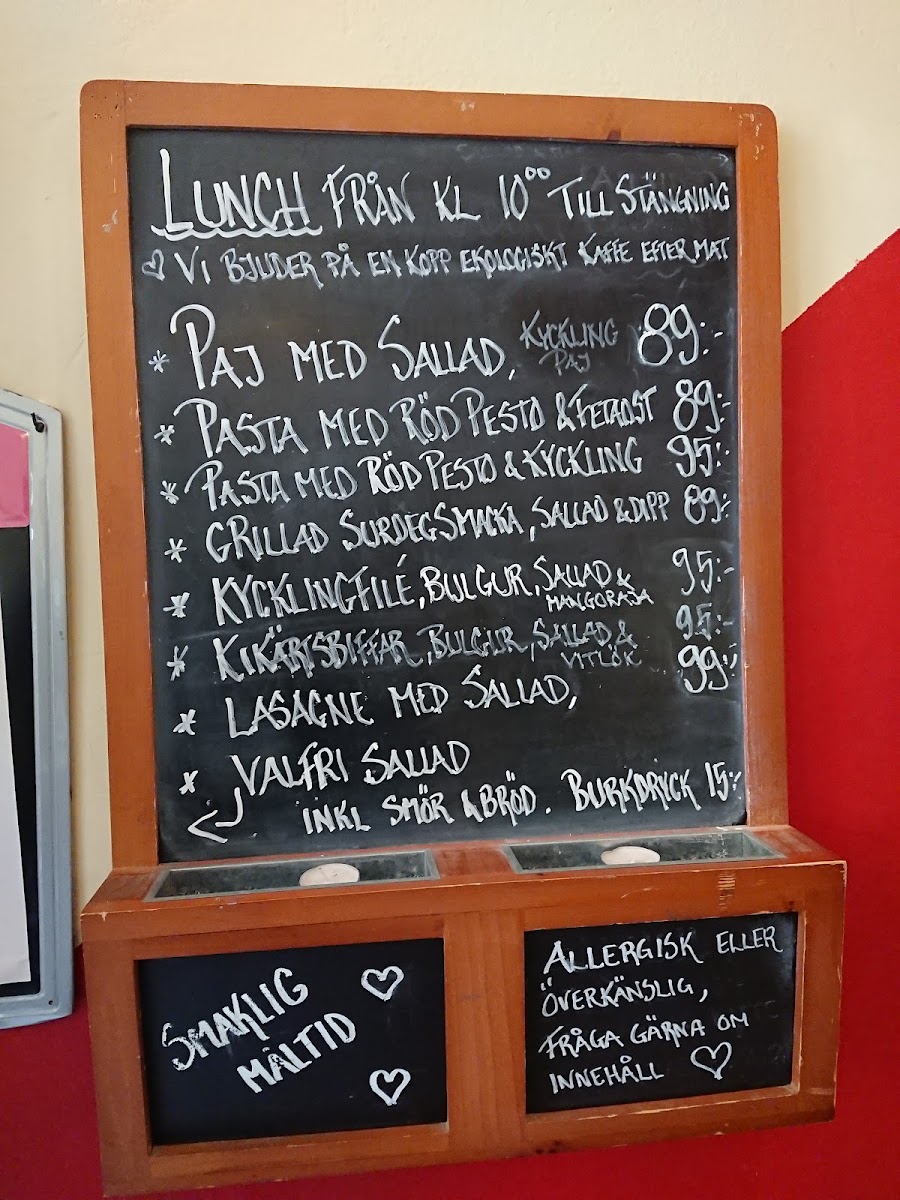 LUNCH FRÅN KL 10⁰⁰ TILL STÄNGNING
♡ VI BJUDER PÅ EN KOPP EKOLOGISKT KAFFE EFTER MAT
* PAJ MED SALLAD, KYCKLING PAJ 89:-
* PASTA MED RÖD PESTO & FETAOST 89:-
* PASTA MED RÖD PESTO & KYCKLING 95:-
* GRILLAD SURDEGSMACKA, SALLAD & DIPP 89:-
* KYCKLINGFILÉ, BULGUR, SALLAD & MANGORAJA 95:-
* KIKÄRTSBIFFAR, BULGUR, SALLAD & VITLÖK 95:-
* LASAGNE MED SALLAD, 99:-
* VALFRI SALLAD
INKL SMÖR & BRÖD. BURKDRYCK 15:-
SMAKLIG
MÅLTID
ALLERGISK ELLER
ÖVERKÄNSLIG,
FRÅGA GÄRNA OM
INNEHÅLL ♡